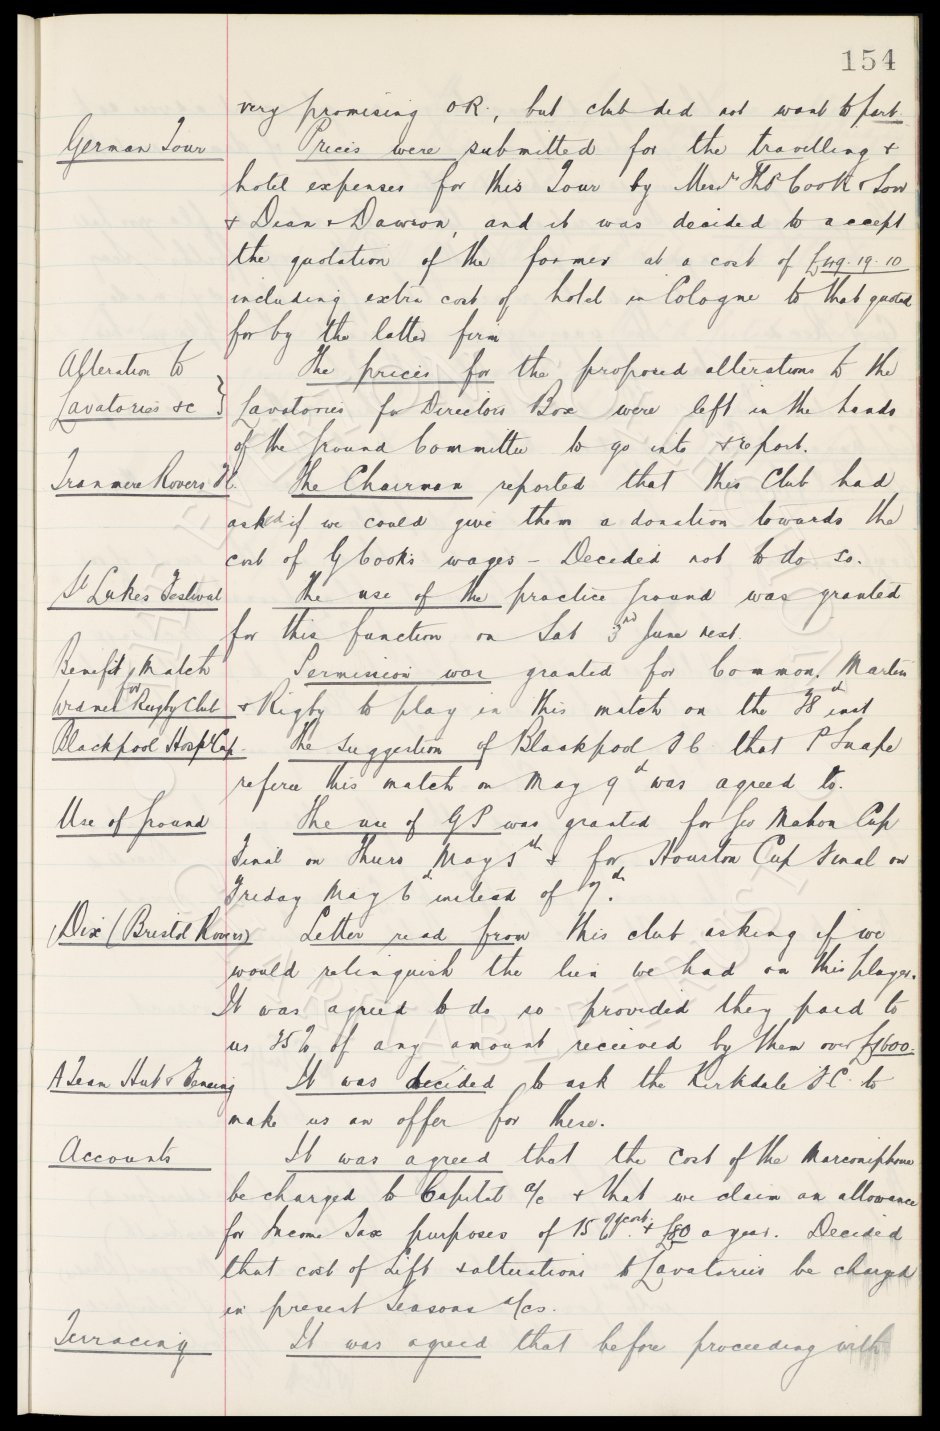 154
very promising OR., but club did not want to part.
German Tour Prices were submitted for the travelling &
hotel expenses for this Tour by Messrs Thos Cook & Son
& Dean & Dawson, and it was decided to accept
the quotation of the former at a cost of 19. 10
including extra cost of hotel in Cologne to that quoted
for by the latter firm
Alteration to The prices for the proposed alterations to the
Lavatories &c } Lavatories for Directors Box were left in the hands
of the Ground Committee to go into & report.
Tranmere Rovers FC. The Chairman reported that this Club had
asked if we could give them a donation towards the
cost of G Cook's wages – Decided not to do so.
St Lukes Festival The use of the practice ground was granted
for this function on Sat 3rd June next.
Benefit Match Permission was granted for Common, Martin
for Rugby Club & Rigby to play in this match on the 28th inst
Blackpool Hospl Cup. The suggestion of Blackpool FC that P Snape
referee this match on May 9th was agreed to.
Use of Ground The use of GP was granted for Geo Mahon Cup
Final on Thurs May 5th & for Houston Cup Final on
Friday May 6th instead of 7th.
Dix (Bristol Rovers) Letter read from this club asking if we
would relinquish the lien we had on this player.
It was agreed to do so provided they paid to
us 25% of any amount received by them over
A Team Hut & Fencing It was decided to ask the Kirkdale FC. to
make us an offer for these.
Accounts It was agreed that the cost of the Marconiphone
be charged to Capital a/c & that we claim an allowance
for Income Tax purposes of 15% of cost & £80 a year. Decided
that cost of Lift & alterations to Lavatories be charged
in present Seasons a/cs.
Terracing It was agreed that before proceeding with